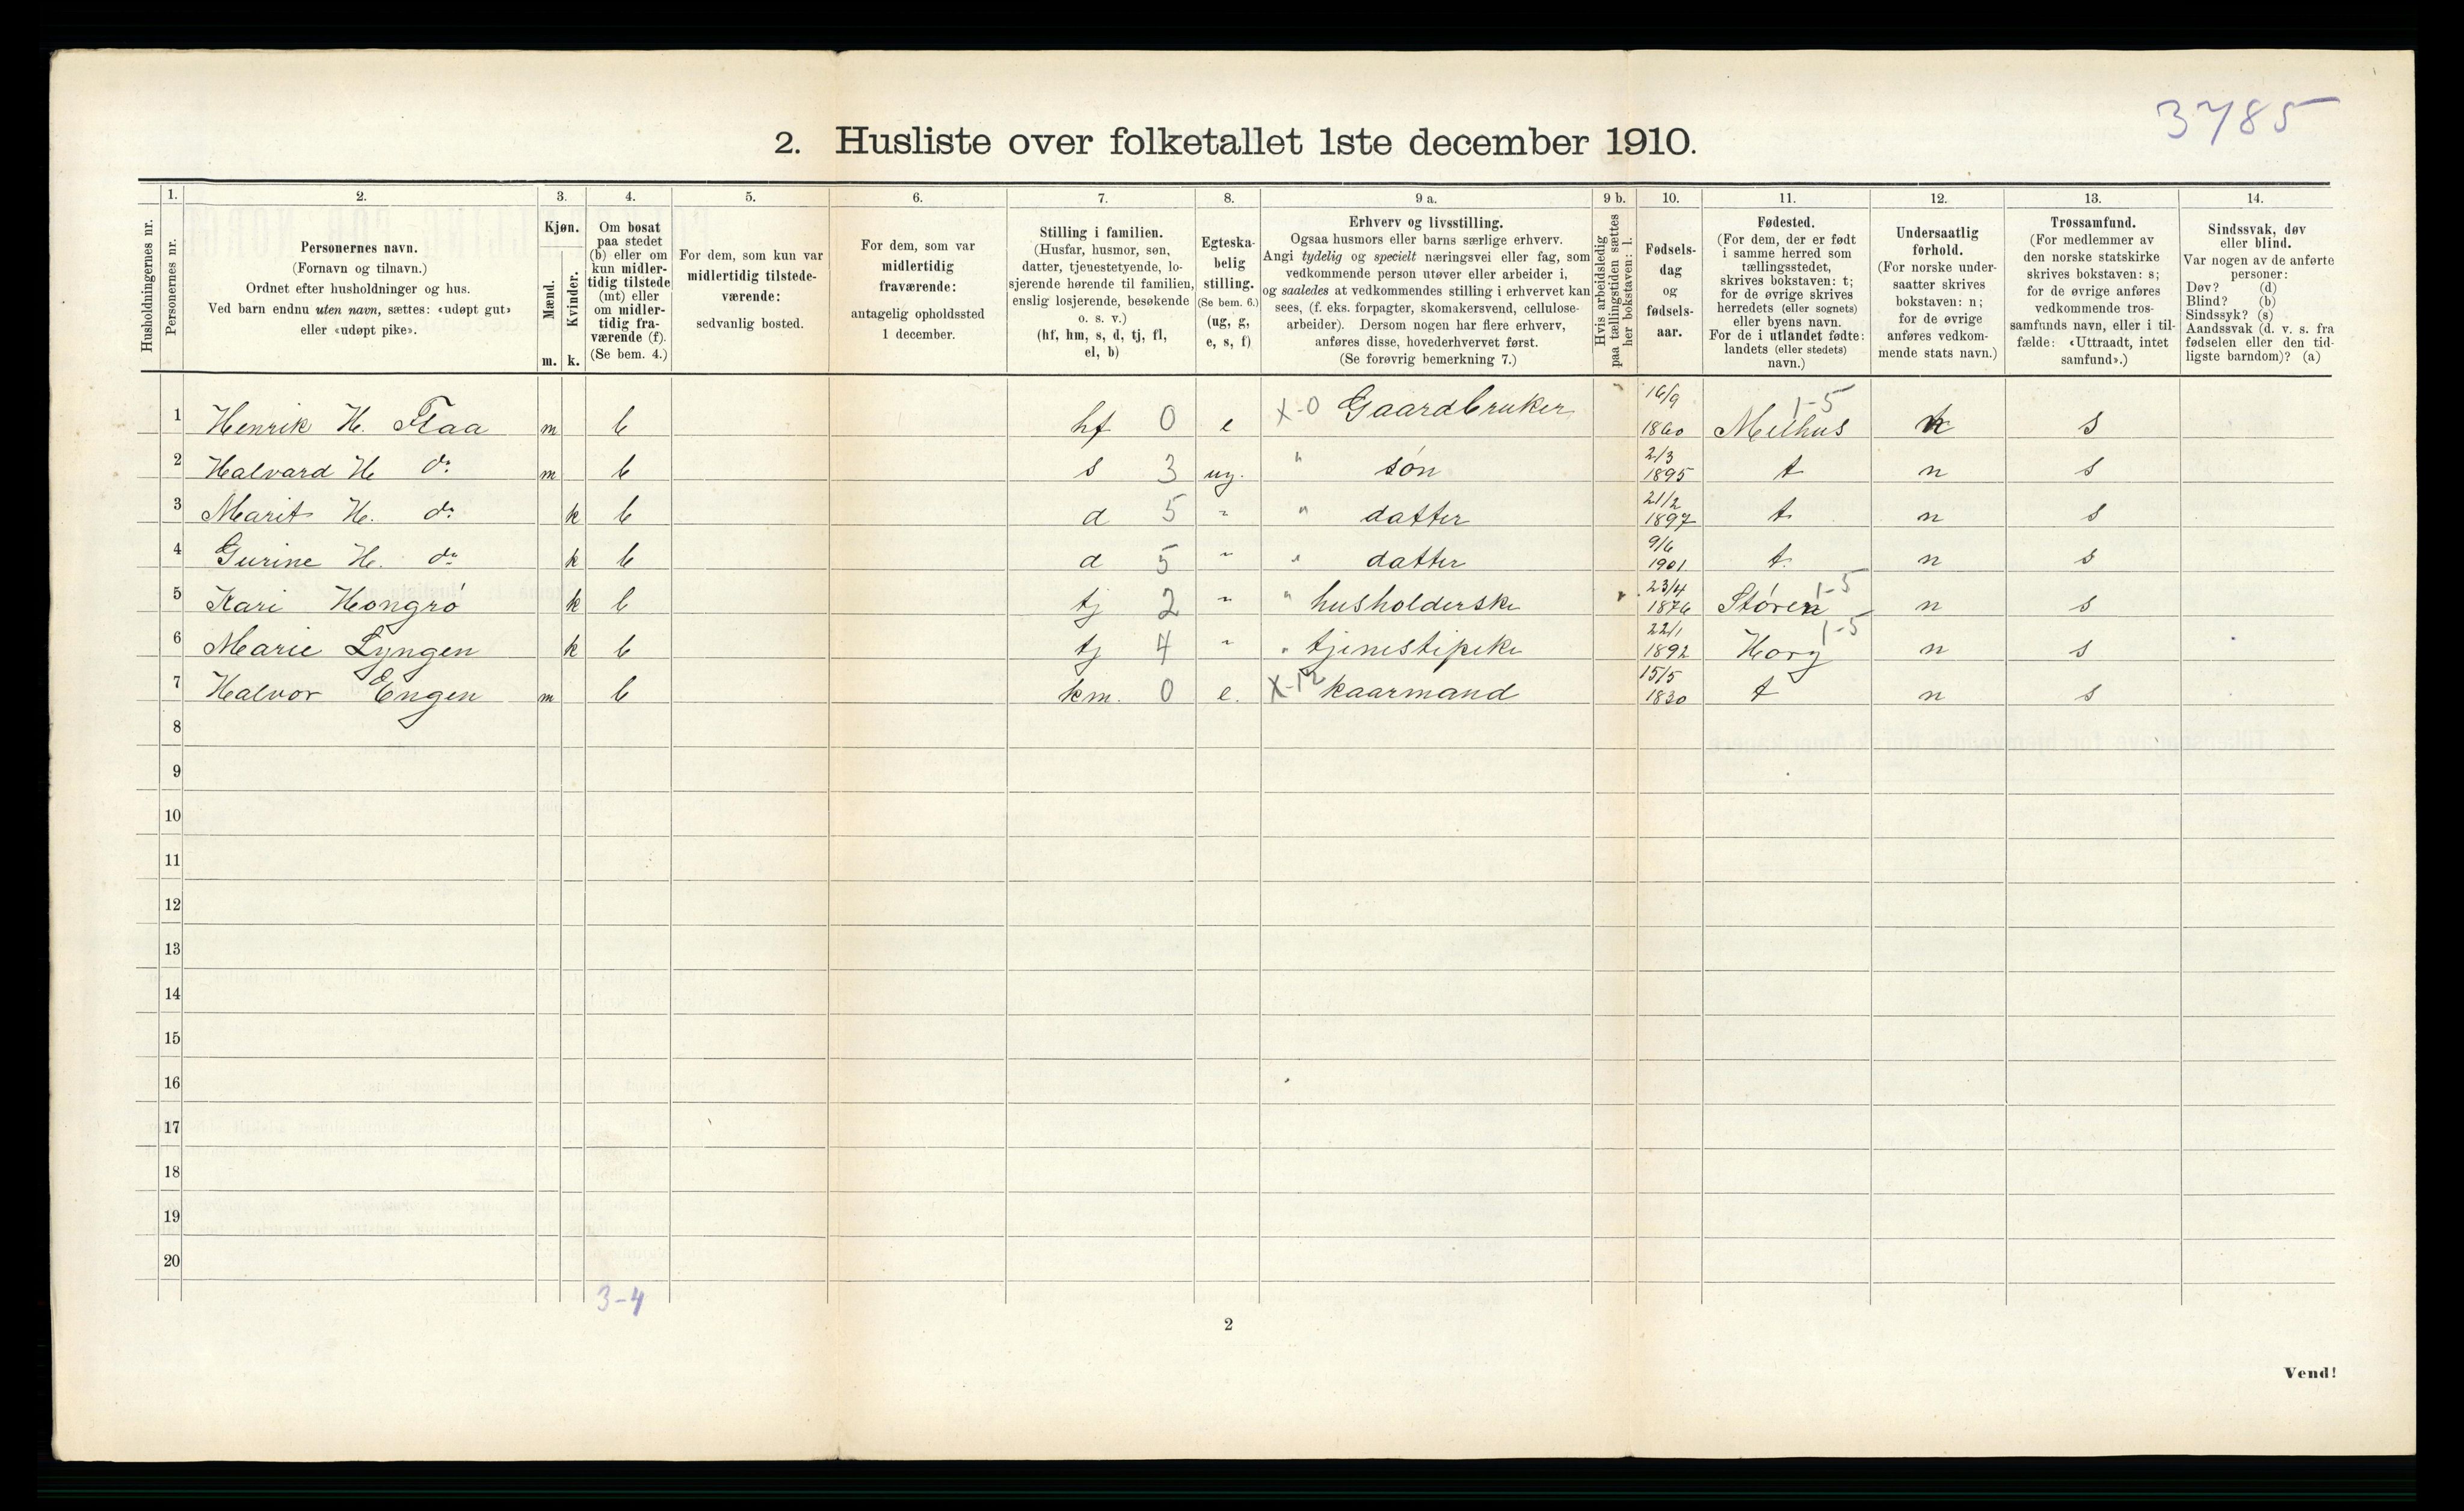 3785
2. Husliste over folketallet 1ste december 1910.
Husholdningernes nr.
1.
Personernes nr.
2.
Personernes navn.
(Fornavn og tilnavn.)
Ordnet efter husholdninger og hus.
Ved barn endnu uten navn, sættes: «udøpt gut»
eller «udøpt pike».
3.
Kjøn.
Mænd.
Kvinder.
m. k.
4.
Om bosat
paa stedet
(b) eller om
kun midler-
tidig tilstede
(mt) eller
om midler-
tidig fra-
værende (f).
(Se bem. 4.)
5.
For dem, som kun var
midlertidig tilstede-
værende:
sedvanlig bosted.
6.
For dem, som var
midlertidig
fraværende:
antagelig opholdssted
1 december.
7.
Stilling i familien.
(Husfar, husmor, søn,
datter, tjenestetyende, lo-
sjerende hørende til familien,
enslig losjerende, besøkende
o. s. v.)
(hf, hm, s, d, tj, fl,
el, b)
8.
Egteska-
belig
stilling.
(Se bem. 6.)
(ug, g,
e, s, f)
9 a.
Erhverv og livsstilling.
Ogsaa husmors eller barns særlige erhverv.
Angi tydelig og specielt næringsvei eller fag, som
vedkommende person utøver eller arbeider i,
og saaledes at vedkommendes stilling i erhvervet kan
sees, (f. eks. forpagter, skomakersvend, cellulose-
arbeider). Dersom nogen har flere erhverv,
anføres disse, hovederhvervet først.
(Se forøvrig bemerkning 7.)
9 b.
Hvis arbeidsledig
paa tællingstiden sættes
her bokstaven: l.
10.
Fødsels-
dag
og
fødsels-
aar.
11.
Fødested.
(For dem, der er født
i samme herred som
tællingsstedet,
skrives bokstaven: t;
for de øvrige skrives
herredets (eller sognets)
eller byens navn.
For de i utlandet fødte:
landets (eller stedets)
navn.)
12.
Undersaatlig
forhold.
(For norske under-
saatter skrives
bokstaven: n;
for de øvrige
anføres vedkom-
mende stats navn.)
13.
Trossamfund.
(For medlemmer av
den norske statskirke
skrives bokstaven: s;
for de øvrige anføres
vedkommende tros-
samfunds navn, eller i til-
fælde: «Uttraadt, intet
samfund».)
14.
Sindssvak, døv
eller blind.
Var nogen av de anførte
personer:
Døv? (d)
Blind? (b)
Sindssyk? (s)
Aandssvak (d. v. s. fra
fødselen eller den tid-
ligste barndom)? (a)
1 Henrik H. Flaa m b hf 0 e X-0 Gaardbruker 16/9 1860 Melhus 1-5 n s
2 Halvard H do m b s 3 ug. " søn 2/3 1895 t n s
3 Marit H. do k b d 5 " " datter 21/2 1897 t n s
4 Gurine H. do k b d 5 " " datter 9/6 1901 t n s
5 Kari Hongrø k b tj 2 " " husholderske 23/4 1876 Støren 1-5 n s
6 Marie Lyngen k b tj 4 " " tjenestipike 22/1 1892 Horg 1-5 n s
7 Halvor Engen m b km. 0 e. X-12 kaarmand 15/5 1830 t n s
8
9
10
11
12
13
14
15
16
17
18
19
20
3-4
2
Vend!